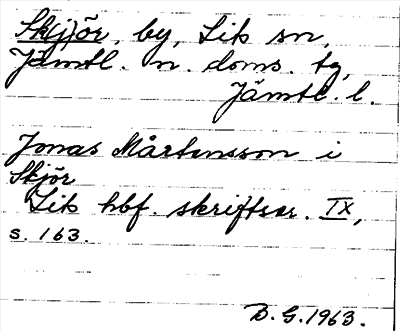 Skjör, by, Lits sn,
Jämtl. n. doms. tg,
Jämtl. l.
Jonas Mårtensson i
Skjör
Lits hbf. skriftser. IX,
s. 163.
B. G. 1963.